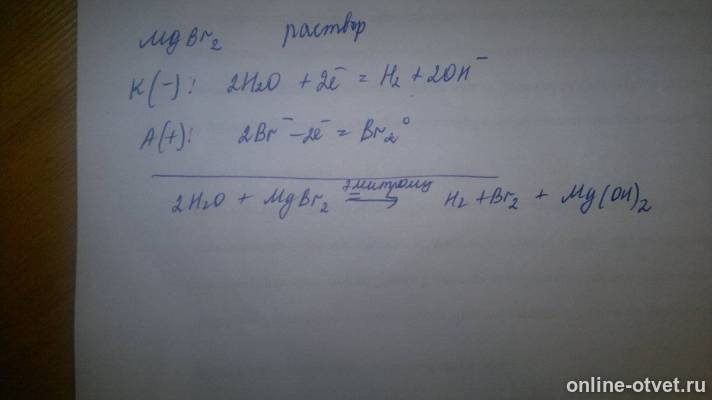 MgBr₂ раствор
K(-): 2H₂O + 2ē = H₂ + 2OH⁻
A(+): 2Br⁻ - 2ē = Br₂⁰
2H₂O + MgBr₂ ⟶ H₂ + Br₂ + Mg(OH)₂
online-otvet.ru